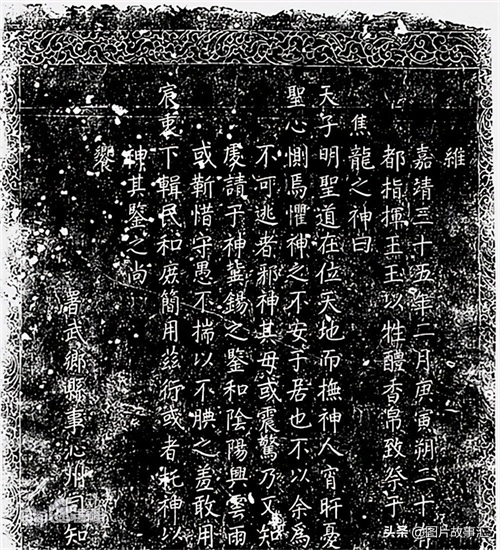 維
嘉靖三十五年二月庚寅朔二十
都指揮王王以牲醴香帛致祭于
焦龍之神曰
天子明聖道在位天地而撫神人宵旰憂
聖心惻焉懼神之不安于居也不以余為
不可逃者邪神其毋或震驚乃又知
虔請于神錫之鑒和陰陽興雲雨
或靳惜守愚不揣以不腆之羞敢用
宸衷下輯民和庶簡用茲行或者神以
神其鑒之尚
饗
署武鄉縣事沁州同知
头条 @图片故事汇